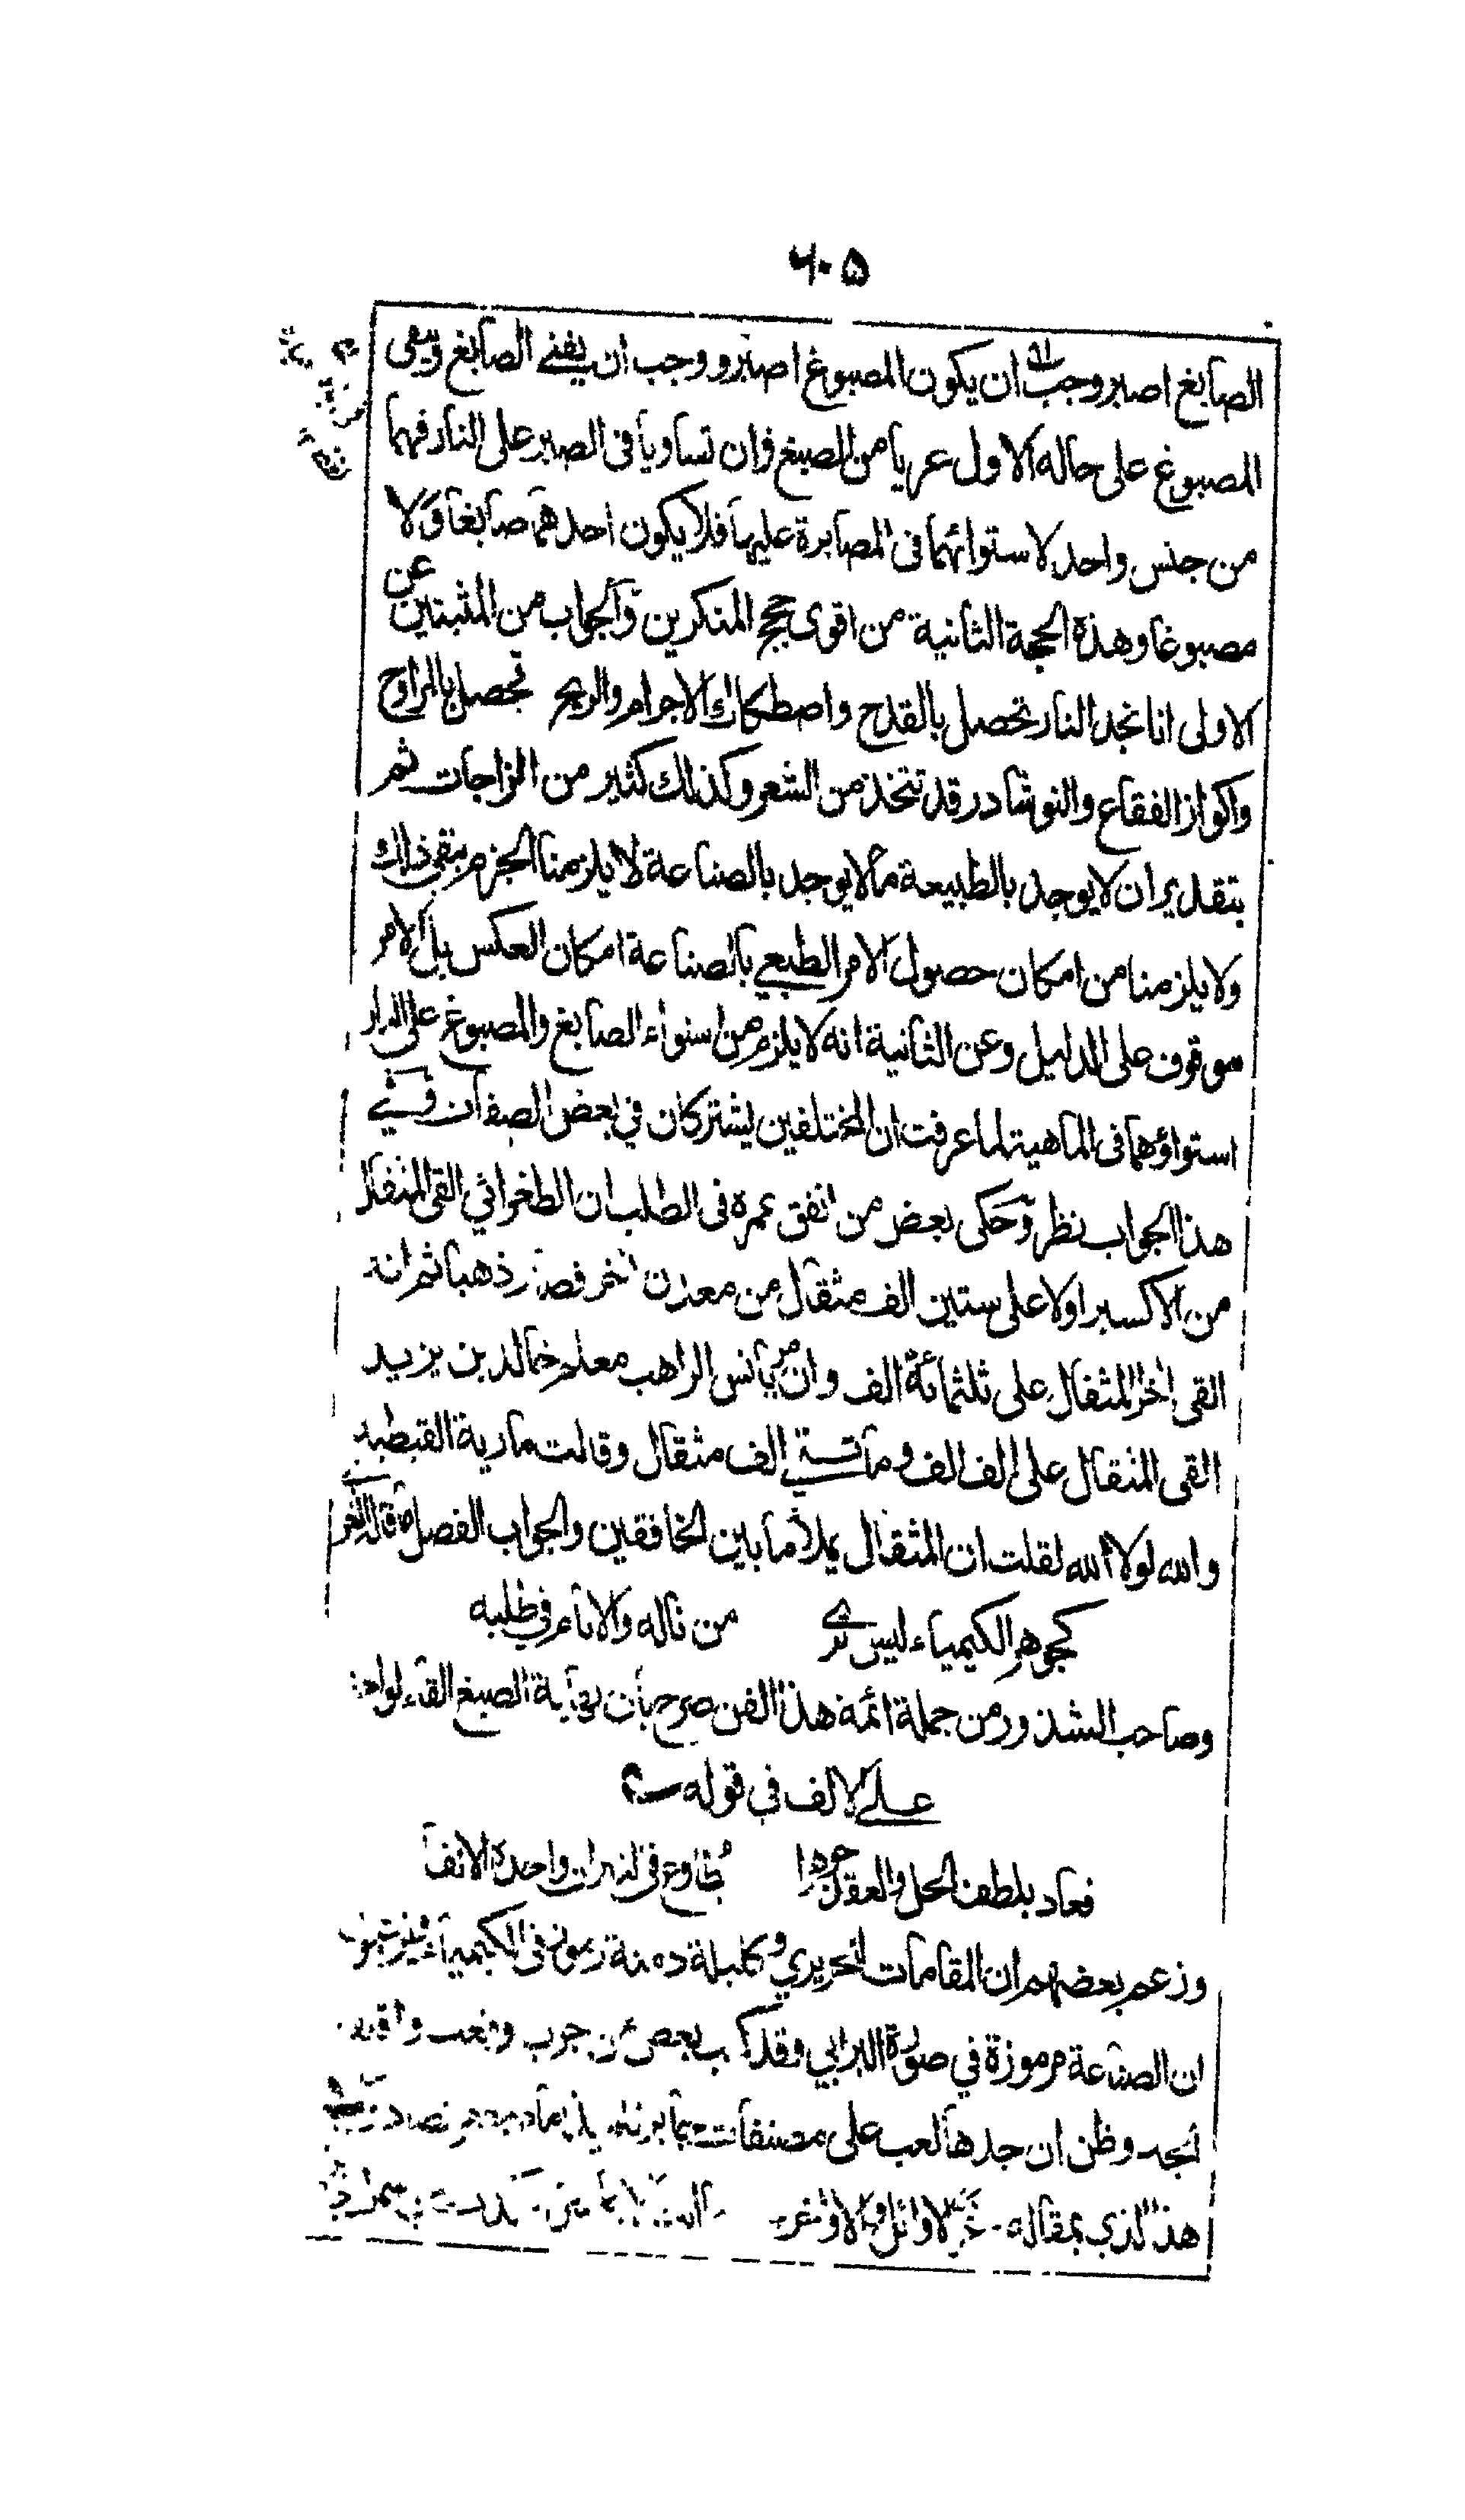 ٦٠٥
الصابغ اصبر وجب ان يكون المصبوغ اصبر و وجب ان يفنى الصابغ ويبقى
المصبوغ على حاله الاول عريا من الصبغ وان تساويا فى الصبر على النار فهما
من جنس واحد لاستوائهما فى المصابرة عليها فلا يكون احدهما صابغا ولا
مصبوغا وهذه الحجة الثانية من اقوى حجج المنكرين والجواب من المثبتين عن
الاولى انا نجد النار تحصل بالقدح واصطكاك الاجرام والريح تحصل بالمراوح
واكواز الفقاع والنوشادر قد تتخذ من الشعر وكذلك كثير من الزاجات ثم
بتقدير ان لا يوجد بالطبيعة ما لا يوجد بالصناعة لا يلزمنا الجزم بنفي ذلك
ولا يلزمنا من امكان حصول الامر الطبيعي بالصناعة امكان العكس بل الامر
موقوف على الدليل وعن الثانية انه لا يلزم من استواء الصابغ والمصبوغ على النار
استواؤهما فى الماهية لما عرفت ان المختلفين يشتركان في بعض الصفات وفي
هذا الجواب نظر وحكى بعض من انفق عمره فى الطلب ان الطغرائي القى المثقال
من الاكسير اولا على ستين الف مثقال من معدن اخر فصار ذهبا ثم انه
القى اخر المثقال على ثلثمائة الف وان مريانس الراهب معلم خالد بن يزيد
القى المثقال على الف الف ومائتى الف مثقال وقالت مارية القبطية
والله لولا الله لقلت ان المثقال يملأ ما بين الخافقين والجواب الفصل ما قاله الغزى
كجوهر الكيمياء ليس ترى من ناله والانام في طلبه
وصاحب الشذور من جملة ائمة هذا الفن صرح بان نهاية الصبغ القاء الواحد
على الالف في قوله
فعاد بلطف الحل والعقد جوهرا يطاوع فى النيران واحده الالفا
وزعم بعضهم ان المقامات للحريري وكليلة ودمنة رموز فى الكيمياء
ان الصناعة مرموزة في صورة البرابي وقد كتب بعض من جرب وتعب واقلقه
الجد وظن ان جدها لعب على مصنفات جابر
هذا الذي بمقاله غر الاوائل والاواخر